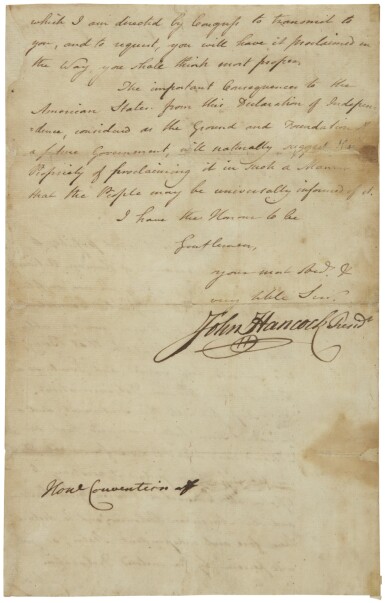 which I am directed by Congress to transmit to
you, and to request, you will have it proclaimed in
the Way, you shall think most proper.
The important Consequences to the
American States from this Declaration of Indepen
dence, considered as the Ground and Foundation of
a future Government, will naturally suggest the
Propriety of proclaiming it in such a Manner
that the People may be universally informed of it.
I have the Honour to be
Gentlemen,
your most Obed. &
very hble Ser.
John Hancock Presidt
Honl Convention of